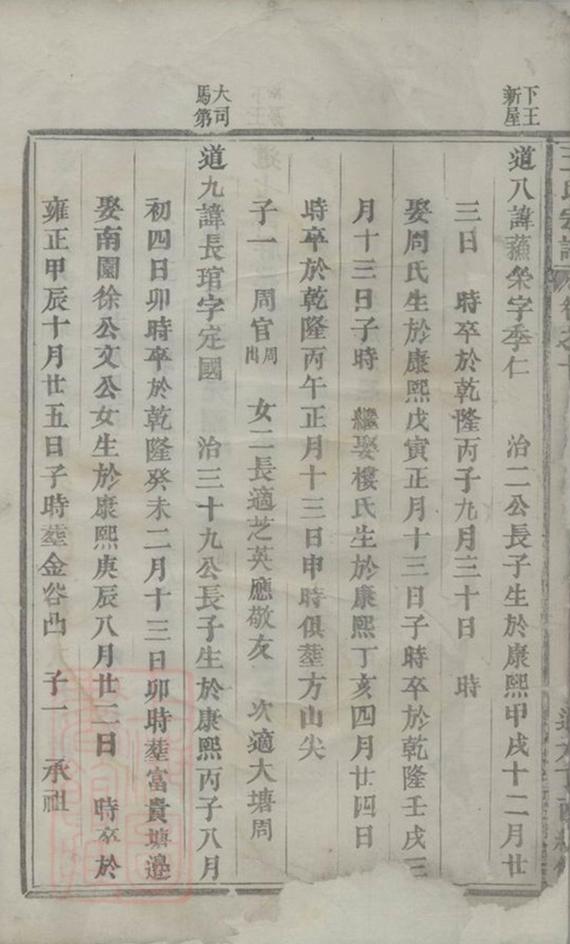 下王
新屋
道八諱蕪榮字季仁 治二公長子生於康熙甲戌十二月廿
三日 時卒於乾隆丙子九月三十日 時
娶周氏生於康熙戊寅正月十三日子時卒於乾隆壬戌三
月十三日子時 繼娶樓氏生於康熙丁亥四月廿四日
時卒於乾隆丙午正月十三日申時俱塟方山尖
子一 周官 周出 女二長適芝英應敬友 次適大塘周
大司
馬第
道九諱長琯字定國 治三十九公長子生於康熙丙子八月
初四日卯時卒於乾隆癸未二月十三日卯時塟富貴塘邊
娶南園徐公文公女生於康熙庚辰八月廿二日 時卒於
雍正甲辰十月廿五日子時塟金谷凸 子一 承祖